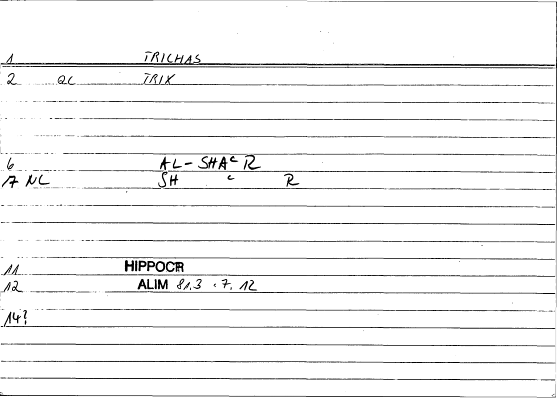 1 TRICHAS
2 QC TRIX
6 AL-SHAᶜR
7 NL SH ᶜ R
11 HIPPOCR
12 ALIM 81,3 . 7. 12
14?